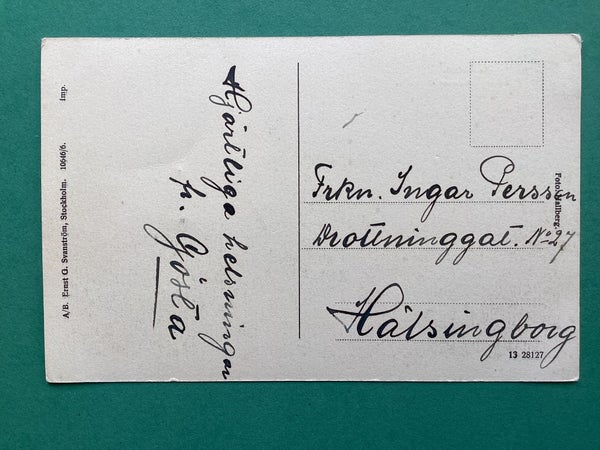 Hjärtliga helsningar
fr. Gösta
Frkn. Ingar Persson
Drottninggat. No 27
Hälsingborg
A/B. Ernst G. Svanström, Stockholm. 10646/6. Imp.
Foto: Hallberg.
13 28127